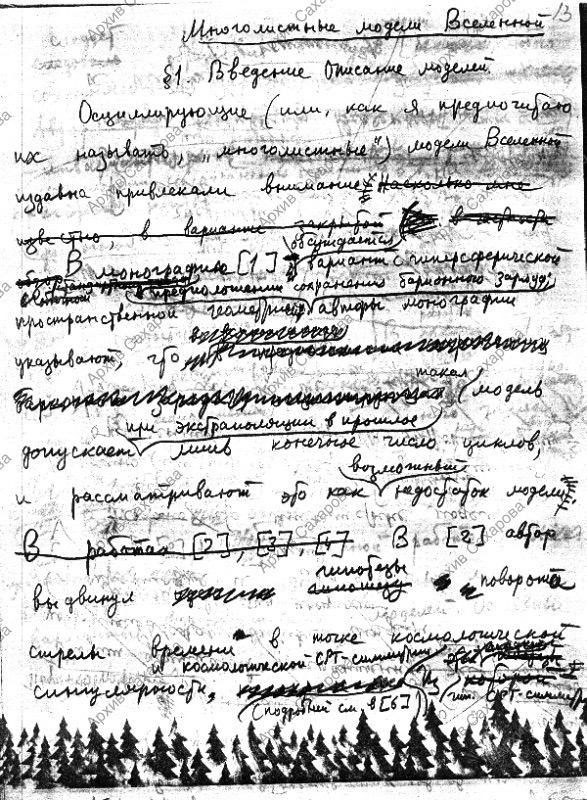 13
Многолистные модели Вселенной
§1 Введение Описание моделей.
Осциллирующие (или, как я предпочитаю
их называть, „многолистные“) модели Вселенной
издавна привлекали внимание. Насколько мне
известно, в варианте закрытой
обсуждается
В монографию [1] вариант с гиперсферической
в предположении сохранения барионного заряда;
пространственной геометрией авторы монографии
указывают, что
такая
модель
при экстраполяции в прошлое
допускает лишь конечное число циклов,
возможный
и рассматривают это как недостаток модели
В работах [2], [3], [4] В [2] автор
гипотезы
выдвинул поворота
стрелы времени в точке космологической
и космологической CPT-симметрии
сингулярности, Из которой
(подробней см. в [6]) гип. CPT-симметр
Архив Сахарова